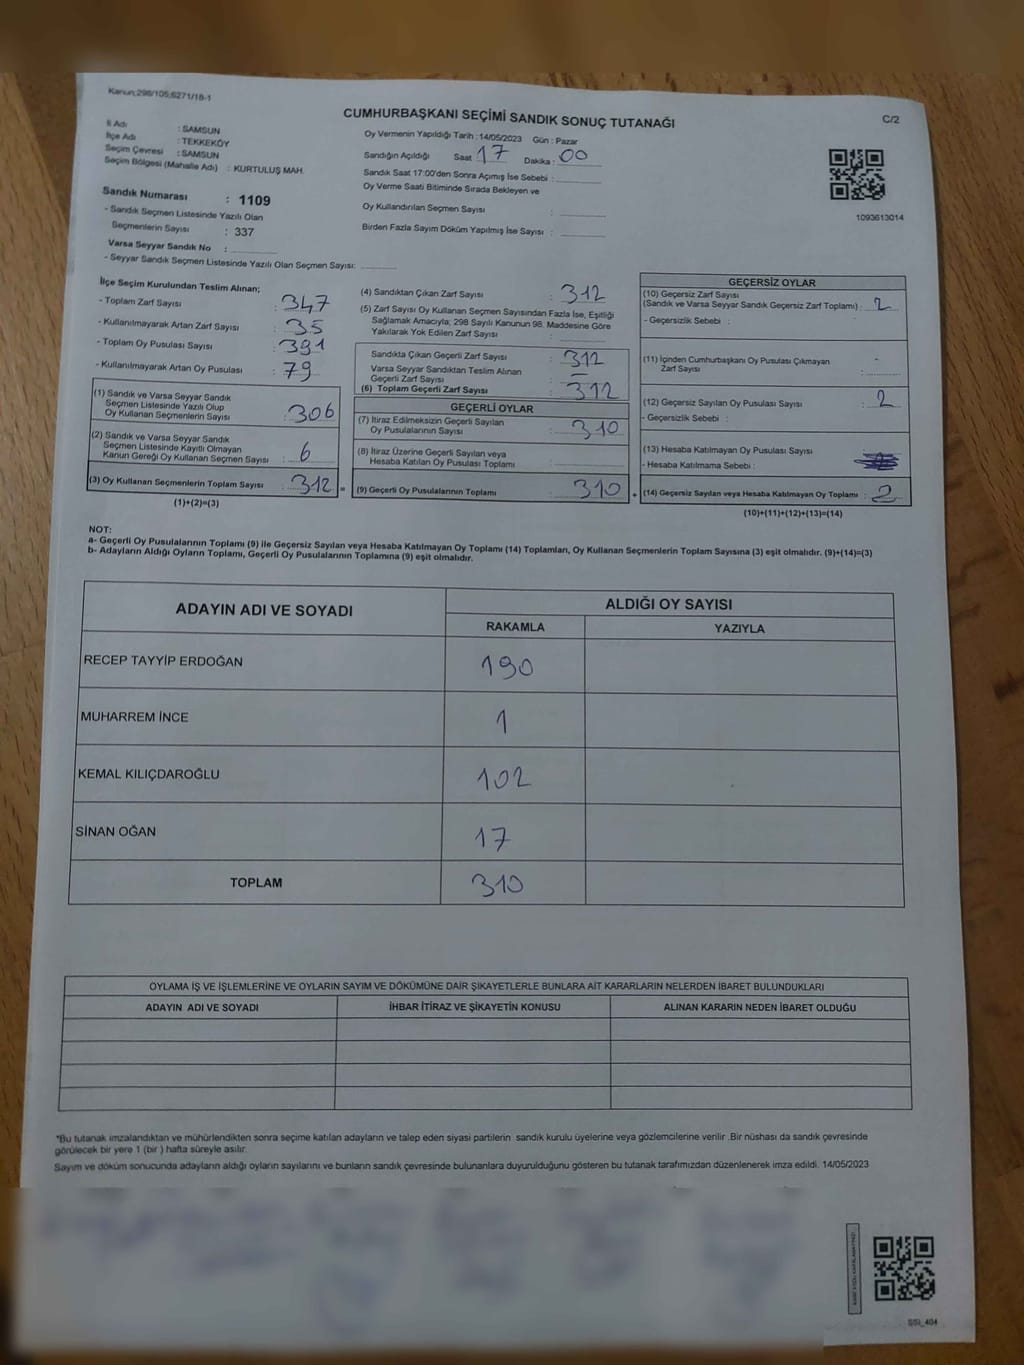 Kanun;298/105;6271/18-1
CUMHURBAŞKANI SEÇİMİ SANDIK SONUÇ TUTANAĞI
C/2
İl Adı : SAMSUN
İlçe Adı : TEKKEKÖY
Seçim Çevresi : SAMSUN
Seçim Bölgesi (Mahalle Adı) : KURTULUŞ MAH.
Sandık Numarası : 1109
- Sandık Seçmen Listesinde Yazılı Olan
Seçmenlerin Sayısı : 337
Varsa Seyyar Sandık No :
- Seyyar Sandık Seçmen Listesinde Yazılı Olan Seçmen Sayısı:
Oy Vermenin Yapıldığı Tarih : 14/05/2023 Gün : Pazar
Sandığın Açıldığı Saat 17 Dakika : 00
Sandık Saat 17:00'den Sonra Açımış İse Sebebi :
Oy Verme Saati Bitiminde Sırada Bekleyen ve
Oy Kullandırılan Seçmen Sayısı :
Birden Fazla Sayım Döküm Yapılmış İse Sayısı :
1093613014
İlçe Seçim Kurulundan Teslim Alınan;
- Toplam Zarf Sayısı : 347
- Kullanılmayarak Artan Zarf Sayısı : 35
- Toplam Oy Pusulası Sayısı : 391
- Kullanılmayarak Artan Oy Pusulası : 79
(1) Sandık ve Varsa Seyyar Sandık
Seçmen Listesinde Yazılı Olup
Oy Kullanan Seçmenlerin Sayısı : 306
(2) Sandık ve Varsa Seyyar Sandık
Seçmen Listesinde Kayıtlı Olmayan
Kanun Gereği Oy Kullanan Seçmen Sayısı : 6
(3) Oy Kullanan Seçmenlerin Toplam Sayısı : 312 =
(1)+(2)=(3)
(4) Sandıktan Çıkan Zarf Sayısı : 312
(5) Zarf Sayısı Oy Kullanan Seçmen Sayısından Fazla İse, Eşitliği
Sağlamak Amacıyla, 298 Sayılı Kanunun 98. Maddesine Göre
Yakılarak Yok Edilen Zarf Sayısı :
Sandıkta Çıkan Geçerli Zarf Sayısı : 312
Varsa Seyyar Sandıktan Teslim Alınan
Geçerli Zarf Sayısı : -
(6) Toplam Geçerli Zarf Sayısı : 312
GEÇERLİ OYLAR
(7) İtiraz Edilmeksizin Geçerli Sayılan
Oy Pusulalarının Sayısı : 310
(8) İtiraz Üzerine Geçerli Sayılan veya
Hesaba Katılan Oy Pusulası Toplamı :
(9) Geçerli Oy Pusulalarının Toplamı : 310 +
GEÇERSİZ OYLAR
(10) Geçersiz Zarf Sayısı
(Sandık ve Varsa Seyyar Sandık Geçersiz Zarf Toplamı) : 2
- Geçersizlik Sebebi :
(11) İçinden Cumhurbaşkanı Oy Pusulası Çıkmayan
Zarf Sayısı : -
(12) Geçersiz Sayılan Oy Pusulası Sayısı : 2
- Geçersizlik Sebebi :
(13) Hesaba Katılmayan Oy Pusulası Sayısı
- Hesaba Katılmama Sebebi :
(14) Geçersiz Sayılan veya Hesaba Katılmayan Oy Toplamı : 2
(10)+(11)+(12)+(13)=(14)
NOT:
a- Geçerli Oy Pusulalarının Toplamı (9) ile Geçersiz Sayılan veya Hesaba Katılmayan Oy Toplamı (14) Toplamları, Oy Kullanan Seçmenlerin Toplam Sayısına (3) eşit olmalıdır. (9)+(14)=(3)
b- Adayların Aldığı Oyların Toplamı, Geçerli Oy Pusulalarının Toplamına (9) eşit olmalıdır.
ADAYIN ADI VE SOYADI
ALDIĞI OY SAYISI
RAKAMLA YAZIYLA
RECEP TAYYİP ERDOĞAN 190
MUHARREM İNCE 1
KEMAL KILIÇDAROĞLU 102
SİNAN OĞAN 17
TOPLAM 310
OYLAMA İŞ VE İŞLEMLERİNE VE OYLARIN SAYIM VE DÖKÜMÜNE DAİR ŞİKAYETLERLE BUNLARA AİT KARARLARIN NELERDEN İBARET BULUNDUKLARI
ADAYIN ADI VE SOYADI İHBAR İTİRAZ VE ŞİKAYETİN KONUSU ALINAN KARARIN NEDEN İBARET OLDUĞU
*Bu tutanak imzalandıktan ve mühürlendikten sonra seçime katılan adayların ve talep eden siyasi partilerin sandık kurulu üyelerine veya gözlemcilerine verilir .Bir nüshası da sandık çevresinde
görülecek bir yere 1 (bir ) hafta süreyle asılır.
Sayım ve döküm sonucunda adayların aldığı oyların sayılarını ve bunların sandık çevresinde bulunanlara duyurulduğunu gösteren bu tutanak tarafımızdan düzenlenerek imza edildi. 14/05/2023
SSI_404